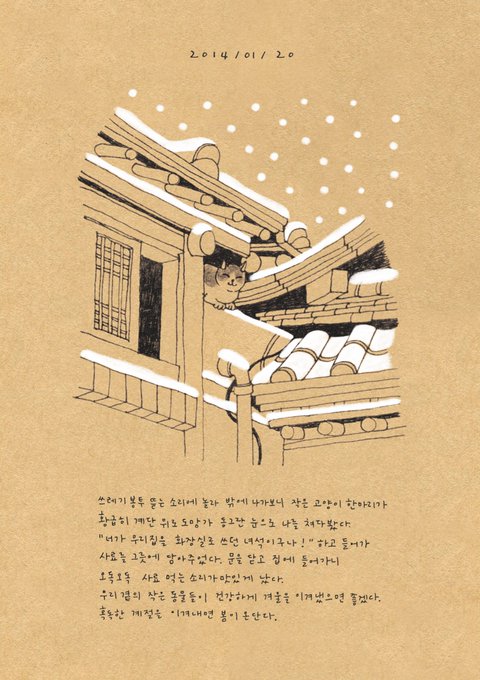 2014/01/20
쓰레기 봉투 뜯는 소리에 놀라 밖에 나가보니 작은 고양이 한마리가
황급히 계단 위로 도망가 동그란 눈으로 나를 쳐다봤다.
"너가 우리집을 화장실로 쓰던 녀석이구나!" 하고 들어가
사료를 그릇에 담아주었다. 문을 닫고 집에 들어가니
오독오독 사료 먹는 소리가 맛있게 났다.
우리 곁의 작은 동물들이 건강하게 겨울을 이겨냈으면 좋겠다.
혹독한 계절을 이겨내면 봄이 온단다.